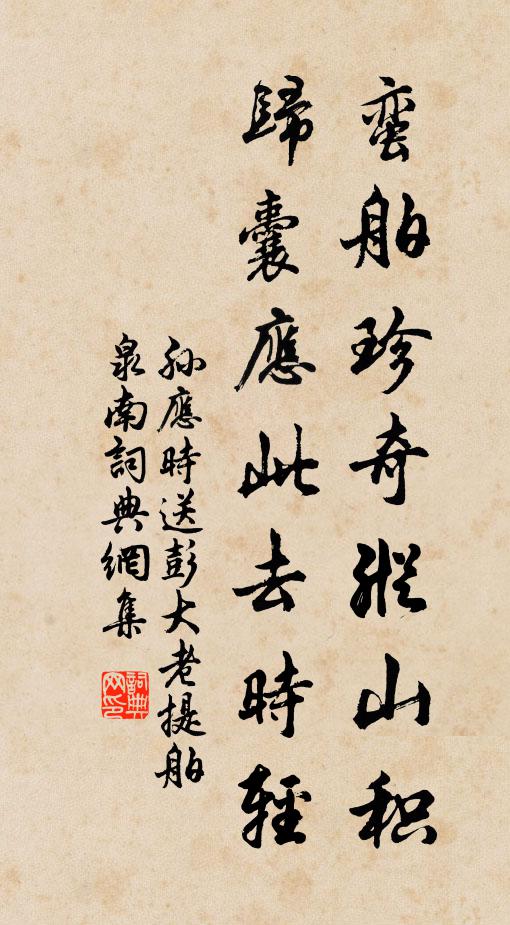 蛮舶珍奇縱山积
歸囊應此去時輕
孙應時送彭大老提舶
泉南詞典網集
詞典网印